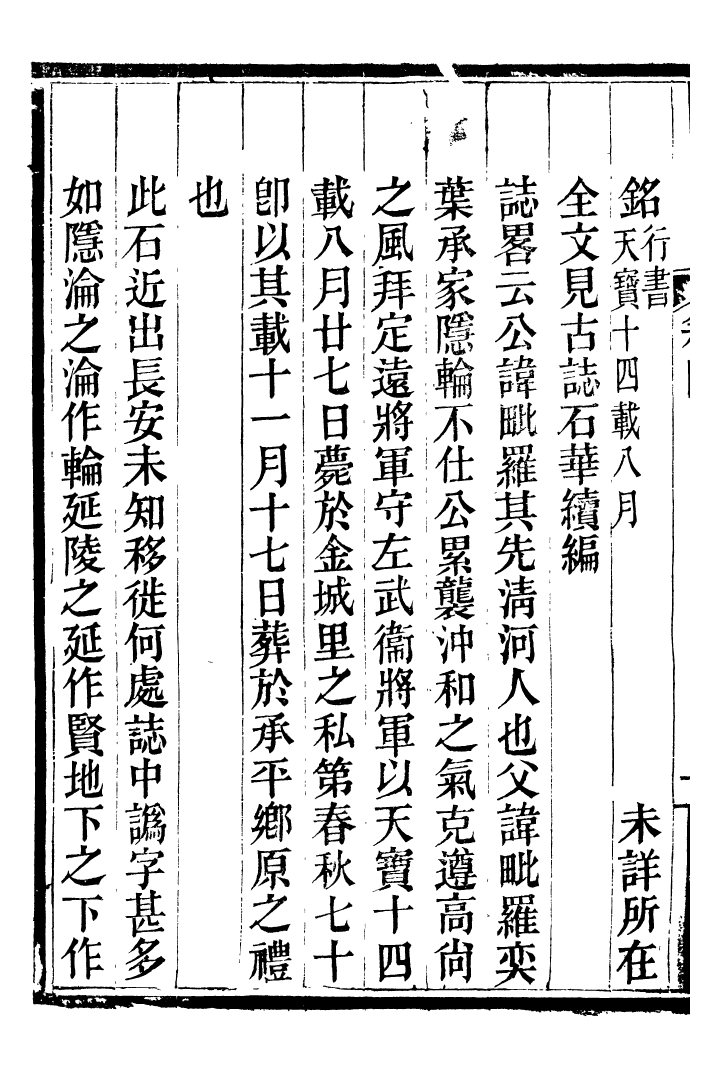 銘行書天寶十四載八月 未詳所在
全文見古誌石華續編
誌畧云公諱毗羅其先淸河人也父諱毗羅奕
葉承家隱輪不仕公累襲沖和之氣克遵高尙
之風拜定遠將軍守左武衞將軍以天寶十四
載八月廿七日薨於金城里之私第春秋七十
卽以其載十一月十七日葬於承平鄉原之禮
也
此石近出長安未知移徙何處誌中譌字甚多
如隱淪之淪作輪延陵之延作賢地下之下作